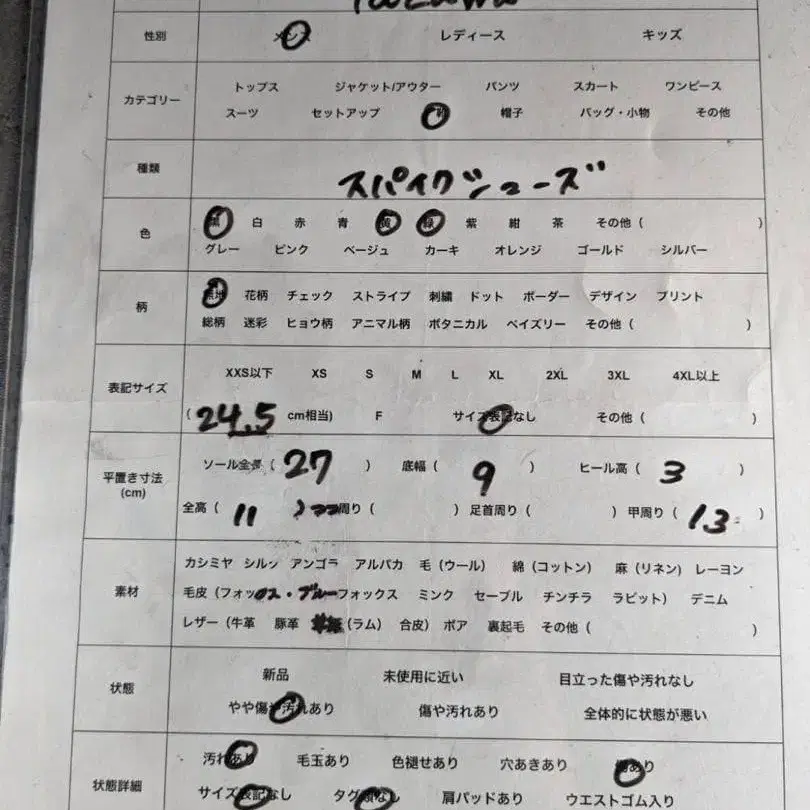 性別 メンズ レディース キッズ
カテゴリー トップス ジャケット/アウター パンツ スカート ワンピース
スーツ セットアップ 帽子 バッグ・小物 その他
種類 スパイクシューズ
色 黒 白 赤 青 黄 緑 紫 紺 茶 その他 ( )
グレー ピンク ベージュ カーキ オレンジ ゴールド シルバー
柄 無地 花柄 チェック ストライプ 刺繍 ドット ボーダー デザイン プリント
総柄 迷彩 ヒョウ柄 アニマル柄 ボタニカル ペイズリー その他 ( )
表記サイズ XXS以下 XS S M L XL 2XL 3XL 4XL以上
( 24.5 cm相当) F サイズ表記なし その他 ( )
平置き寸法 (cm) ソール全長 ( 27 ) 底幅 ( 9 ) ヒール高 ( 3 )
全高 ( 11 ) 周り ( ) 足首周り ( ) 甲周り ( 13 )
素材 カシミヤ シルク アンゴラ アルパカ 毛 (ウール) 綿 (コットン) 麻 (リネン) レーヨン
毛皮 (フォックス・ブルーフォックス ミンク セーブル チンチラ ラビット) デニム
レザー (牛革 豚革 (ラム) 合皮) ボア 裏起毛 その他 ( )
状態 新品 未使用に近い 目立った傷や汚れなし
やや傷や汚れあり 傷や汚れあり 全体的に状態が悪い
状態詳細 汚れあり 毛玉あり 色褪せあり 穴あきあり あり
サイズ表記なし タグ なし 肩パッドあり ウエストゴム入り